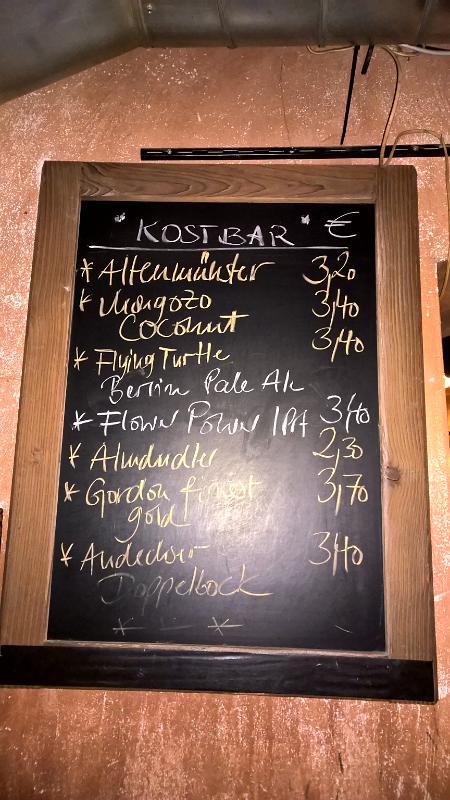 " KOSTBAR " €
* Altenmünster 3,20
* Mongozo 3,40
Coconut
* Flying Turtle 3,40
Berlin Pale Ale
* Flower Power IPA 3,40
* Almdudler 2,30
* Gordon finest 3,70
gold
* Andechser 3,40
Doppelbock
* - *